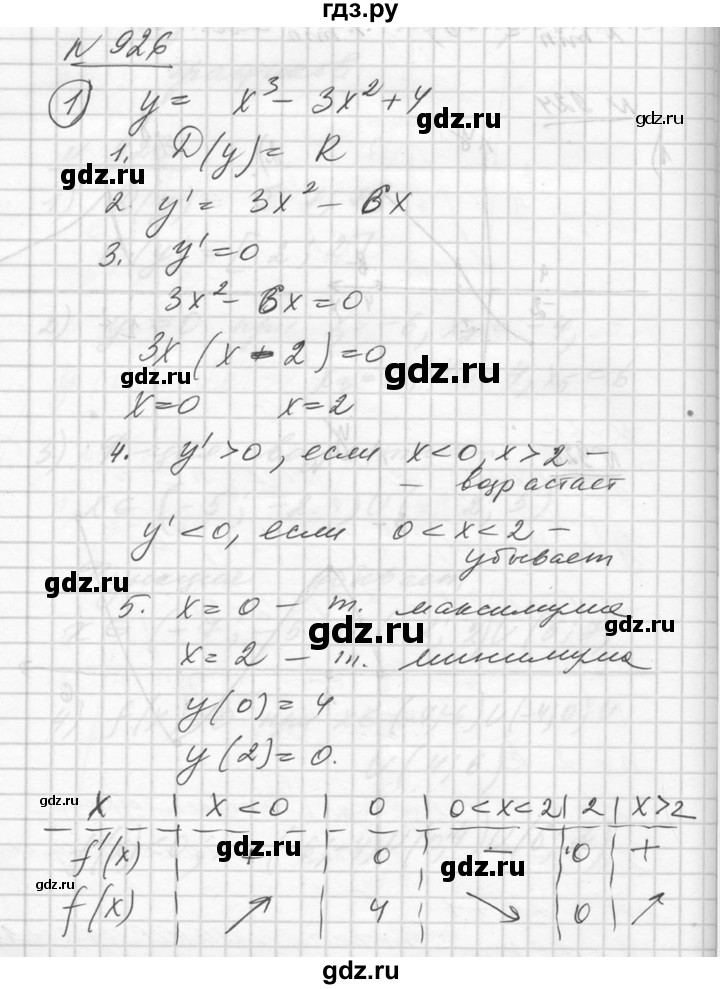 гдз.ру
№ 926
1) y = x³ - 3x² + 4
gdz.ru
1. D(y) = R
gdz.ru
2. y' = 3x² - 6x
gdz.ru
3. y' = 0
3x² - 6x = 0
3x (x - 2) = 0
gdz.ru
gdz.ru
x = 0 x = 2
4. y' > 0, если x < 0, x > 2 –
gdz.ru
– возрастает
y' < 0, если 0 < x < 2 –
убывает
gdz.ru
5. x = 0 – т. максимума
gdz.ru
gdz.ru
x = 2 – т. минимума
y(0) = 4
y(2) = 0.
gdz.ru
gdz.ru
x | x < 0 | 0 | 0 < x < 2 | 2 | x > 2
f'(x) | + | 0 | – | 0 | +
gdz.ru
gdz.ru
f(x) | ↗ | 4 | ↘ | 0 | ↗
gdz.ru
gdz.ru